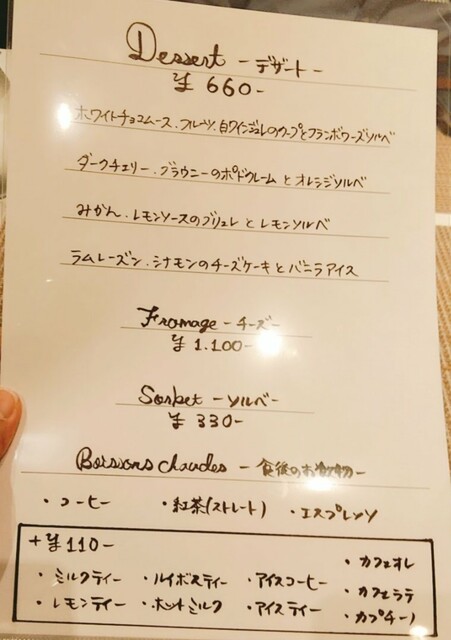 Dessert -デザート-
¥660-
ホワイトチョコムース・フルーツ、白ワインジュレのクープとフランボワーズソルベ
ダークチェリー、ブラウニーのポドクレームとオレンジソルベ
みかん、レモンソースのブリュレとレモンソルベ
ラムレーズン、シナモンのチーズケーキとバニラアイス
Fromage -チーズ-
¥1.100-
Sorbet -ソルベ-
¥330-
Boissons chaudes -食後のお飲物-
・コーヒー ・紅茶(ストレート) ・エスプレッソ
+¥110-
・カフェオレ
・ミルクティー ・ルイボスティー ・アイスコーヒー ・カフェラテ
・レモンティー ・ホットミルク ・アイスティー ・カプチーノ